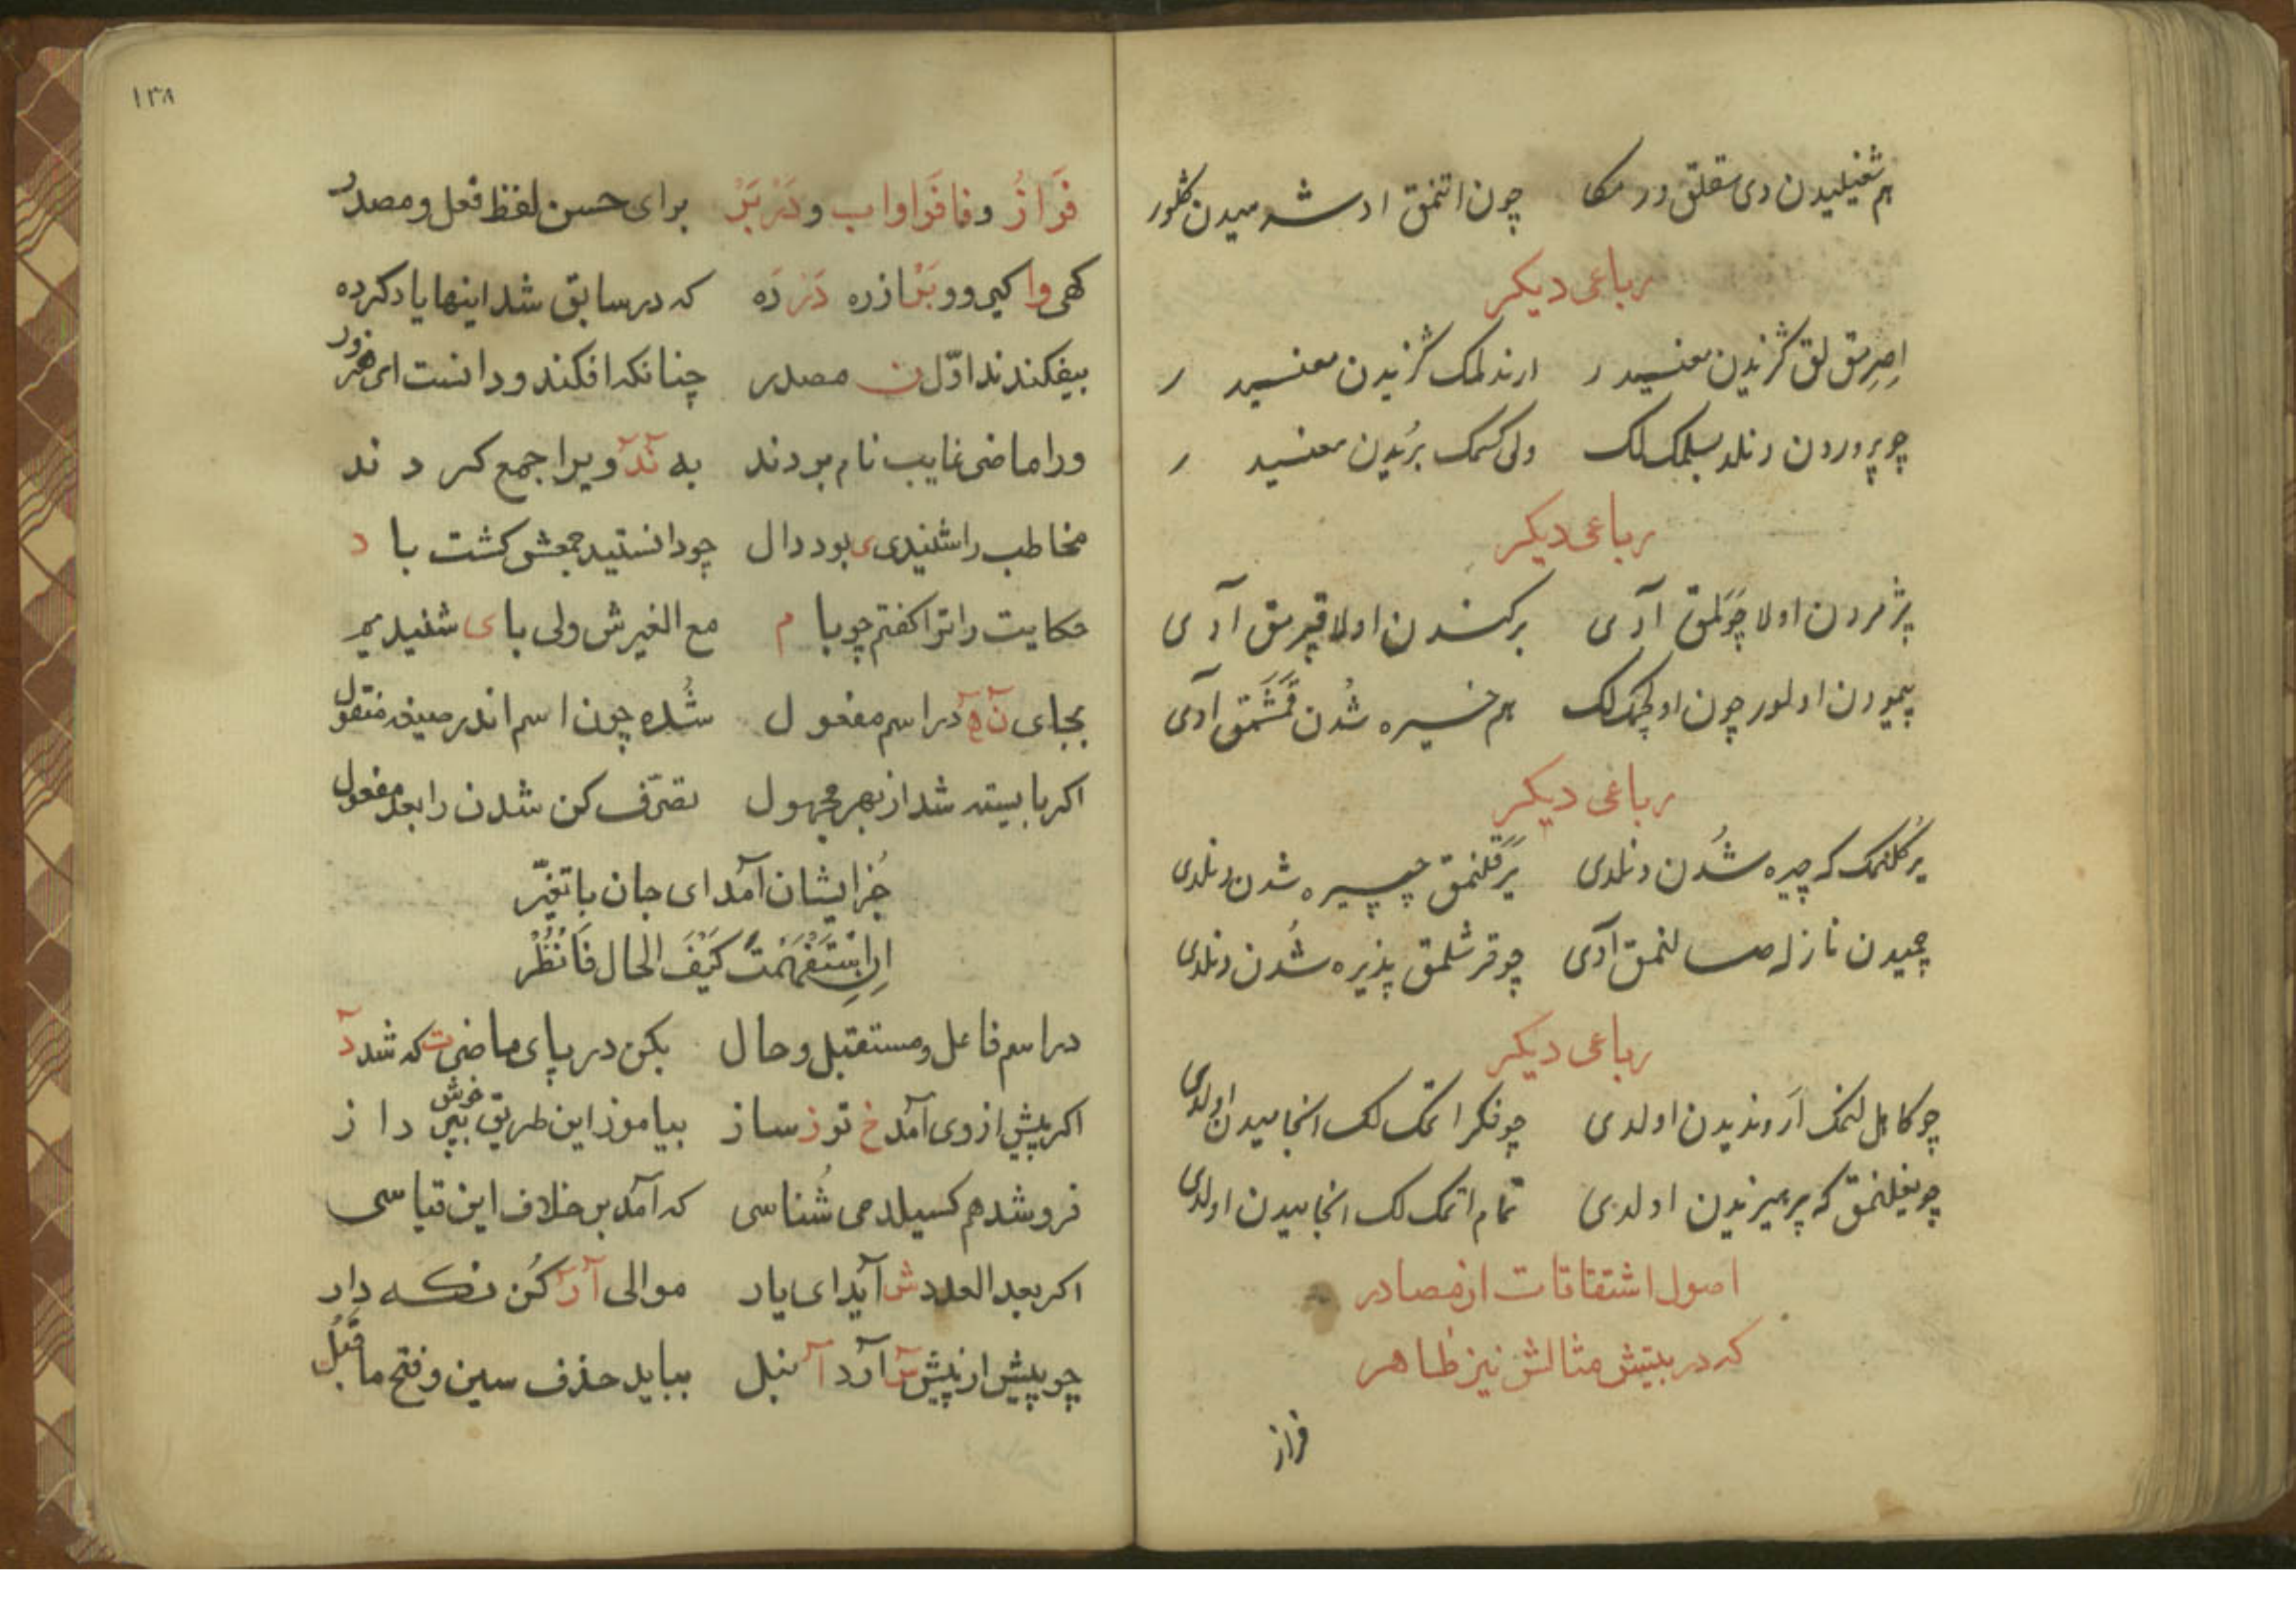 هم شغیلیدن دی سقلق ورمکا چون اتنمق اد شه میدن کلور
رباعی دیکر
اصرمق لق کزیدن معنسیدر ارندلمک کزیدن معنسیدر
چو پروردن دنلد بسلمک لک ولی کسمک بریدن معنسیدر
رباعی دیکر
پژمردن اولا چولمق آدی برکندن اولا قپرمق آدی
پیمودن اولور چون اولچمک لک هم خیره شدن قمشمق آدی
رباعی دیکر
یرکلنمک که چیره شدن دنلدی یرقلنمق چپیره شدن دنلدی
چمیدن نازله صالنمق آدی چو قرشلمق پذیره شدن دنلدی
رباعی دیکر
چو کاهل لنمک اروندیدن اولدی چونکرا تمک لک انجامیدن اولدی
چو یغلنمق که پرهیزیدن اولدی تمام اتمک لک انجامیدن اولدی
اصول اشتقاقات از مصادر
که در بیتیش مثالش نیز ظاهر
فراز
١٣٨
فَرَازُ وفا فَرَا واب و دَرْ بَرْ برای حسن لفظ فعل ومصدر
کهی وا کیر و و بَرْ از ره دَرْ رَه که در سابق شد اینها یاد کرده
بیفکندند اوّل ن مصدر چنانکه افکند ودانست ای هنرور
ورا ماضی غایب نام بردند به نْدْ ویرا جمع کردند
مخاطب را شنیدی ی بود دال چو دانستید جمعش کشت با د
حکایت را ترا کفتم چو با م مع الغیرش ولی با ی شنیدیم
بجای ن هْ در اسم مفعول شُده چون اسم اندر صیغه منقول
اکر بایسته شد از بهر مجهول تصرّف کن شدن را بعد مفعول
جُز ایشان آمد ای جان با تغیّر
اِن اسْتَفْهَمْتَ کَیْفَ الحال فَانْظُرْ
در اسم فاعل ومستقبل وحال بکن در پای ماضی ت که شد دْ
اکر پیش از وی آمد خ تو ز ساز بیاموز این طریق خوش بپرداز
فروشد هم کسیلد می شُناسی که آمد بر خلاف این قیاسی
اکر بعد العدد ش آید ای یار موالی آ رْ کُن نکه دار
چو پیش از پیش سْ آرد آ منبل بباید حذف سین وفتح ما قبل